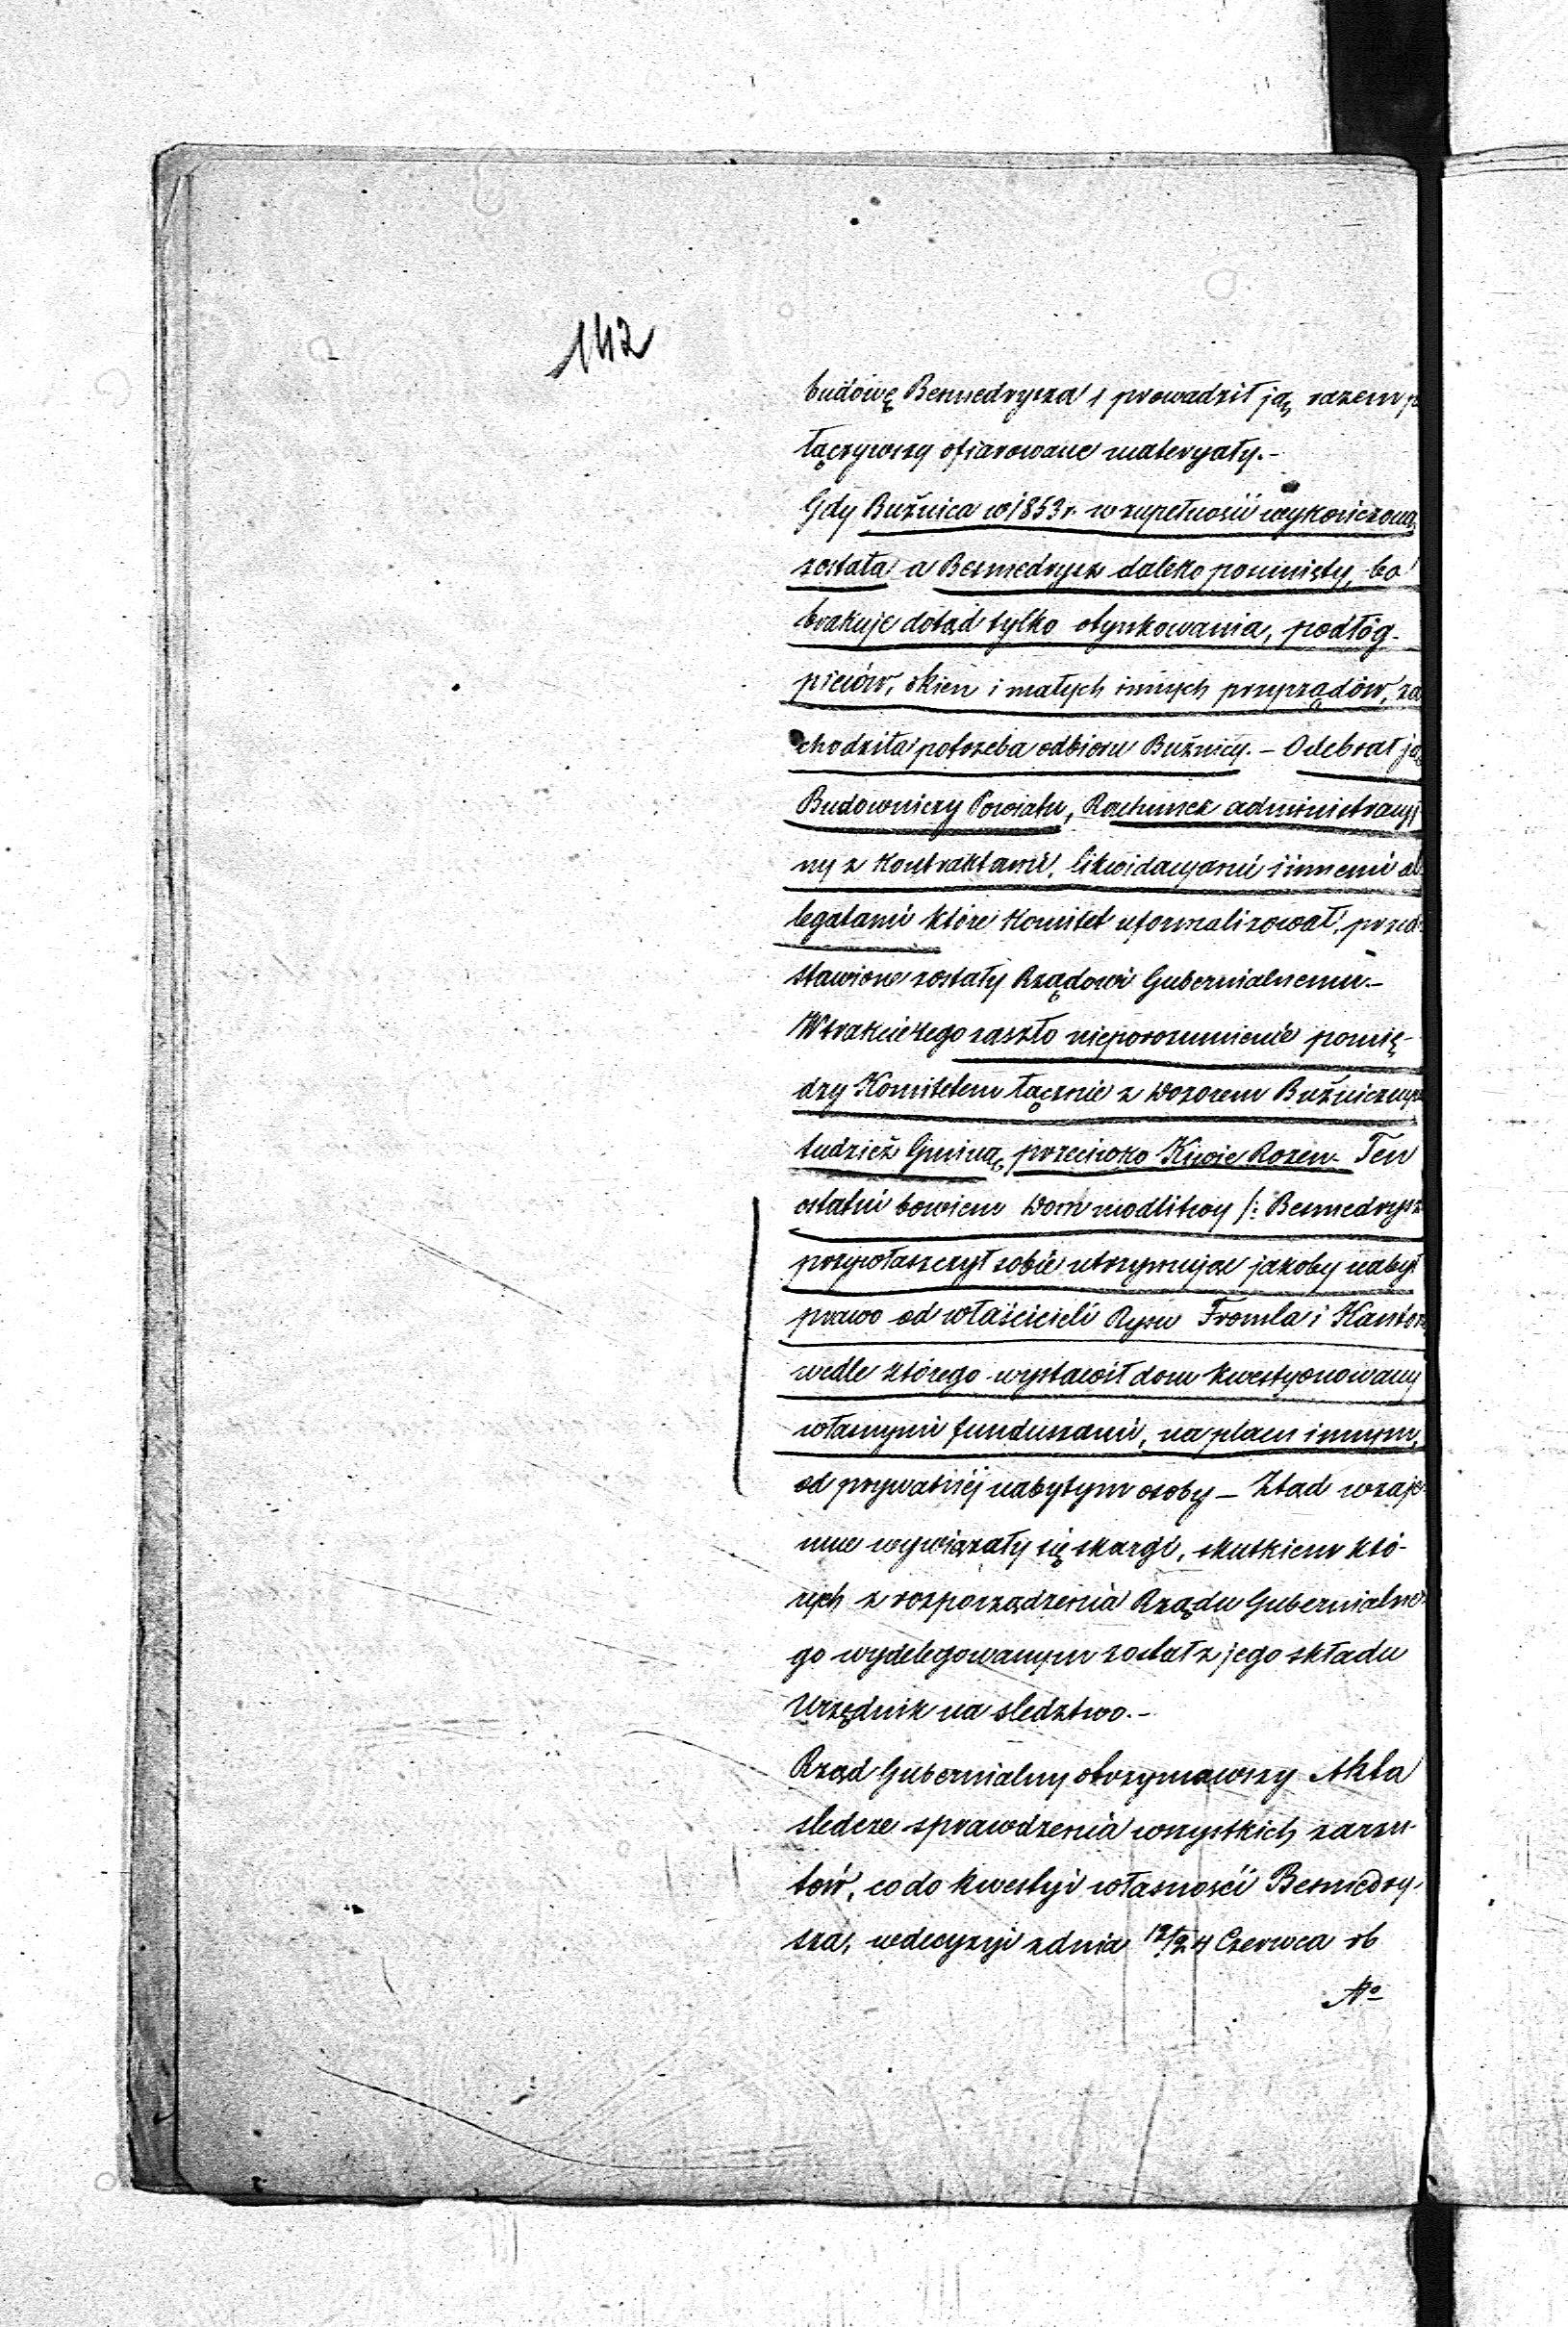 142
budowę Besmedrysza i prowadził ją razem po
łączywszy ofiarowane materyały.-
Gdy Bużnica w 1853 r. w zupełności wykończona
została a Besmedrysz daleko posunięty, bo
brakuje dotąd tylko otynkowania, podłóg.
pieców, okien i małych innych przyrządów, za
chodziła potrzeba odbioru Bużnicy. - Odebrał ją
Budowniczy Powiatu, Rachunek administracyj
ny z Kontraktami, likwidacyami i innemi al
legatami które Komitet uformalizował, przed-
stawione zostały Rządowi Gubernialnemu.-
W trakcie tego zaszło nieporozumienie pomię-
dzy Komitetem łącznie z Dozorem Bużniczym
tudzież Gminą, przeciwko Kiwie Rozen. Ten
ostatni bowiem Dom modlitwy /: Besmedrysz
przywłaszczył sobie utrzymując jakoby nabył
prawo od właścicieli Rysu Fromla i Kantor
wedle którego wystawił dom kwestyonowany
własnymi funduszami, na placu innym,
od prywatnéj nabytym osoby - Ztad wzaje-
mne wywiązały się skargi, skutkiem któ-
rych z rozporządzenia Rządu Gubernialne-
go wydelegowanym został z jego składu
Urzędnik na sledztwo.-
Rząd Gubernialny otrzymawszy Akta
sledcze sprawdzenia wszystkich zarzu-
tów, co do kwestyi własności Besmedry-
sza, w decyzyi z dnia 12/24 Czerwca rb
No